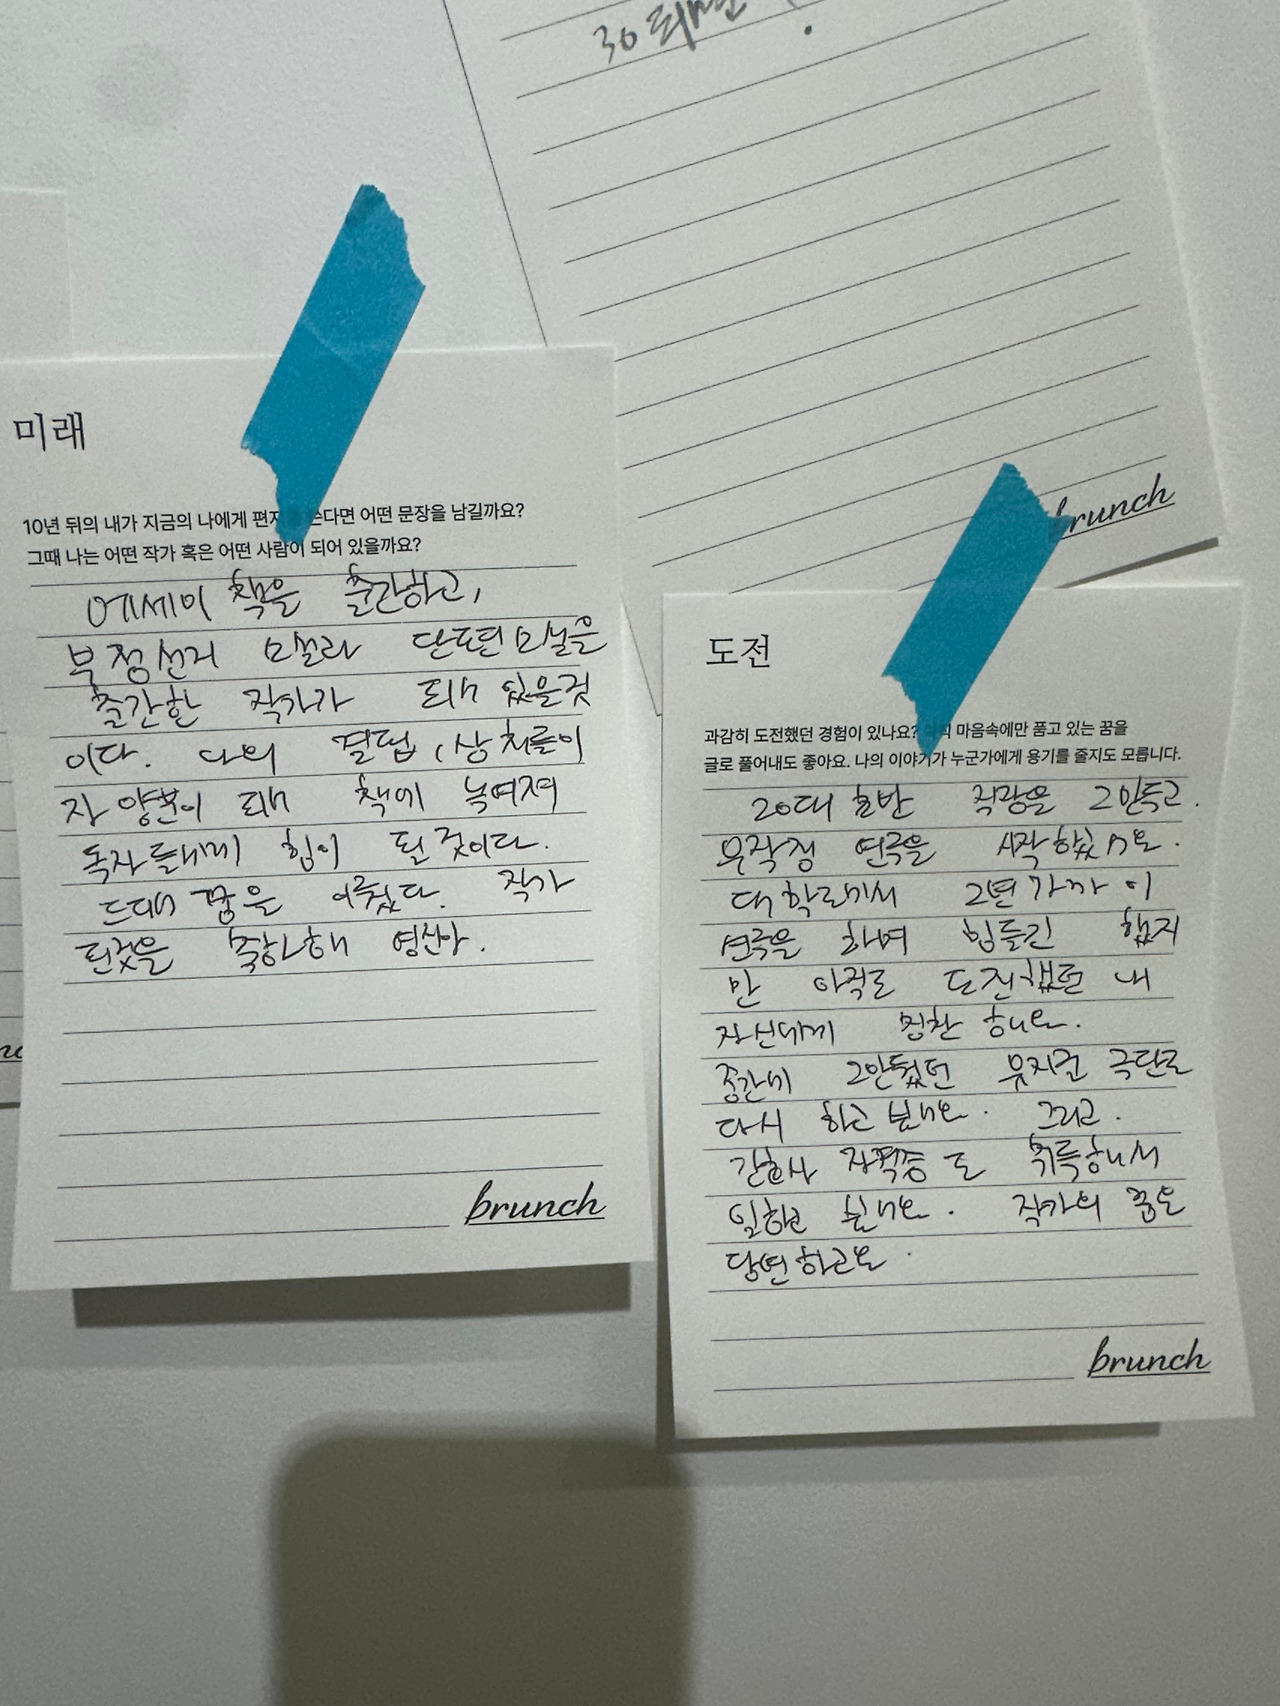 미래
10년 뒤의 내가 지금의 나에게 편지를 쓴다면 어떤 문장을 남길까요?
그때 나는 어떤 작가 혹은 어떤 사람이 되어 있을까요?
에세이 책을 출간하고,
부정선거 모살라 단편모살을
출간한 작가가 돼 있을것
이다. 나의 결핍, 상처들이
자양분이 돼 책에 녹여져
독자들에게 힘이 될 것이다.
드뎌 꿈을 이뤘다. 작가
된것을 축하해 영산아.
brunch
brunch
도전
과감히 도전했던 경험이 있나요? 마음속에만 품고 있는 꿈을
글로 풀어내도 좋아요. 나의 이야기가 누군가에게 용기를 줄지도 모릅니다.
20대 초반 직장을 그만두고.
무작정 연극을 시작했어요.
대학로에서 2년 가까이
연극을 하며 힘들긴 했지
만 아직도 도전했던 내
자신에게 칭찬 해요.
중간에 그만뒀던 뮤지컬 극단도
다시 하고 보내요. 그리고.
간호사 자격증도 취득해서
일하고 보내요. 작가의 꿈은
당연하고요.
brunch